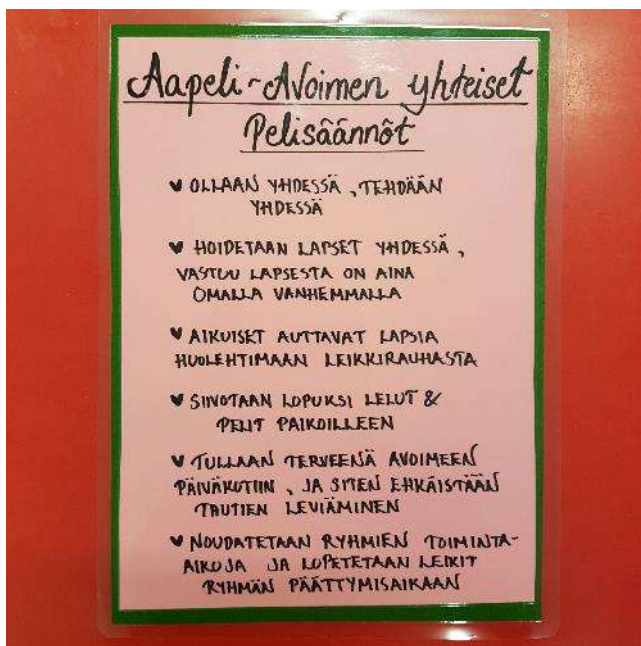 Aapeli-Avoimen yhteiset
Pelisäännöt
♥ OLLAAN YHDESSÄ, TEHDÄÄN
YHDESSÄ
♥ HOIDETAAN LAPSET YHDESSÄ,
VASTUU LAPSESTA ON AINA
OMALLA VANHEMMALLA
♥ AIKUISET AUTTAVAT LAPSIA
HUOLEHTIMAAN LEIKKIRAUHASTA
♥ SIIVOTAAN LOPUKSI LELUT &
PELIT PAIKOILLEEN
♥ TULLAAN TERVEENÄ AVOIMEEN
PÄIVÄKOTIIN, JA SITEN EHKÄISTÄÄN
TAUTIEN LEVIÄMINEN
♥ NOUDATETAAN RYHMIEN TOIMINTA-
AIKOJA JA LOPETETAAN LEIKIT
RYHMÄN PÄÄTTYMISAIKAAN